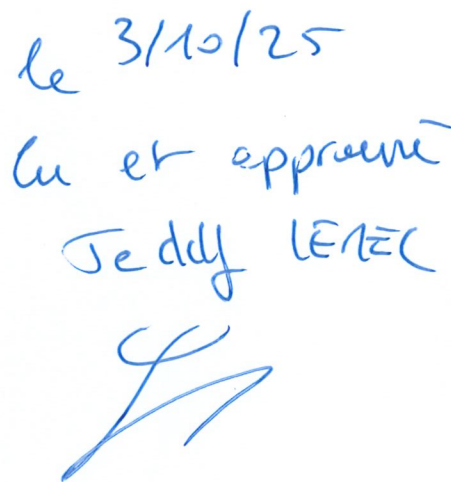 le 3/10/25
lu et approuvé
Teddy